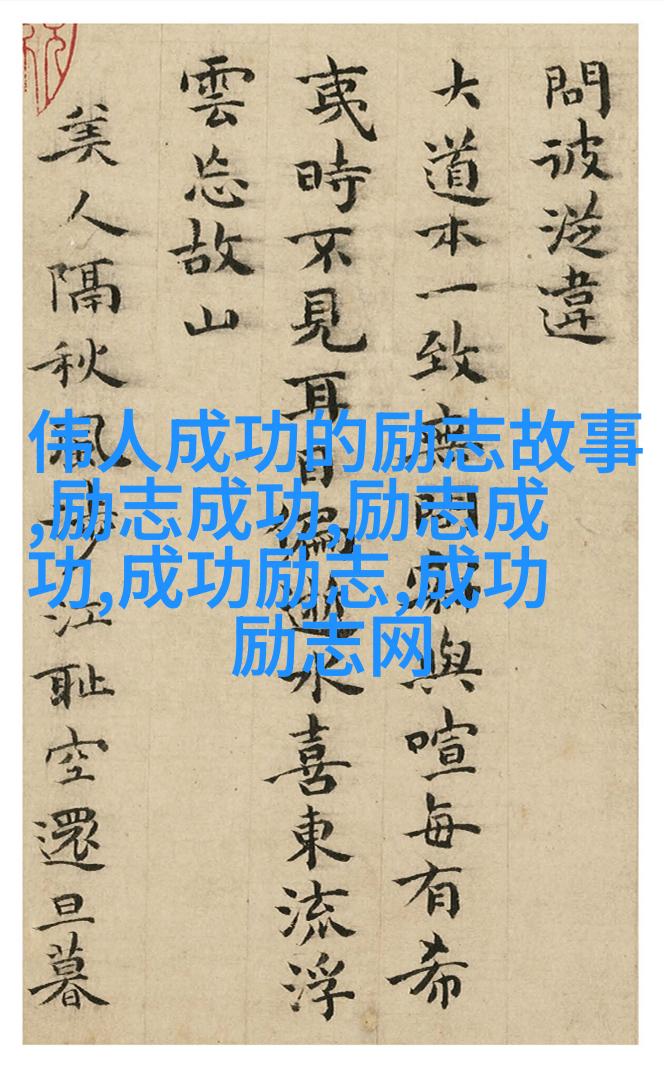 問彼從違
大道本一致無間與喧每有希
夷時不見耳目偏逝水喜東流浮
雲忘故山
美人隔秋風涉江恥空還旦暮
伟人成功的励志故事
,励志成功,励志成
功,成功励志,成功
励志网